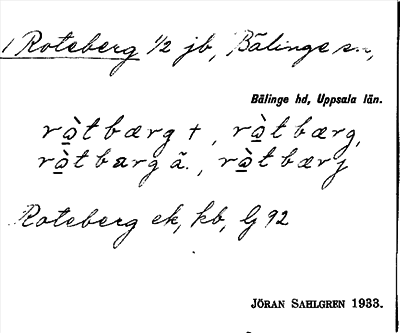 1 Roteberg 1/2 jb, Bälinge sn,
Bälinge hd, Uppsala län.
rò̱tbærg +, rò̱tbærg,
rò̱tbarg ä., rò̱tbærj
Roteberg ek, kb, Lg 92
JÖRAN SAHLGREN 1933.